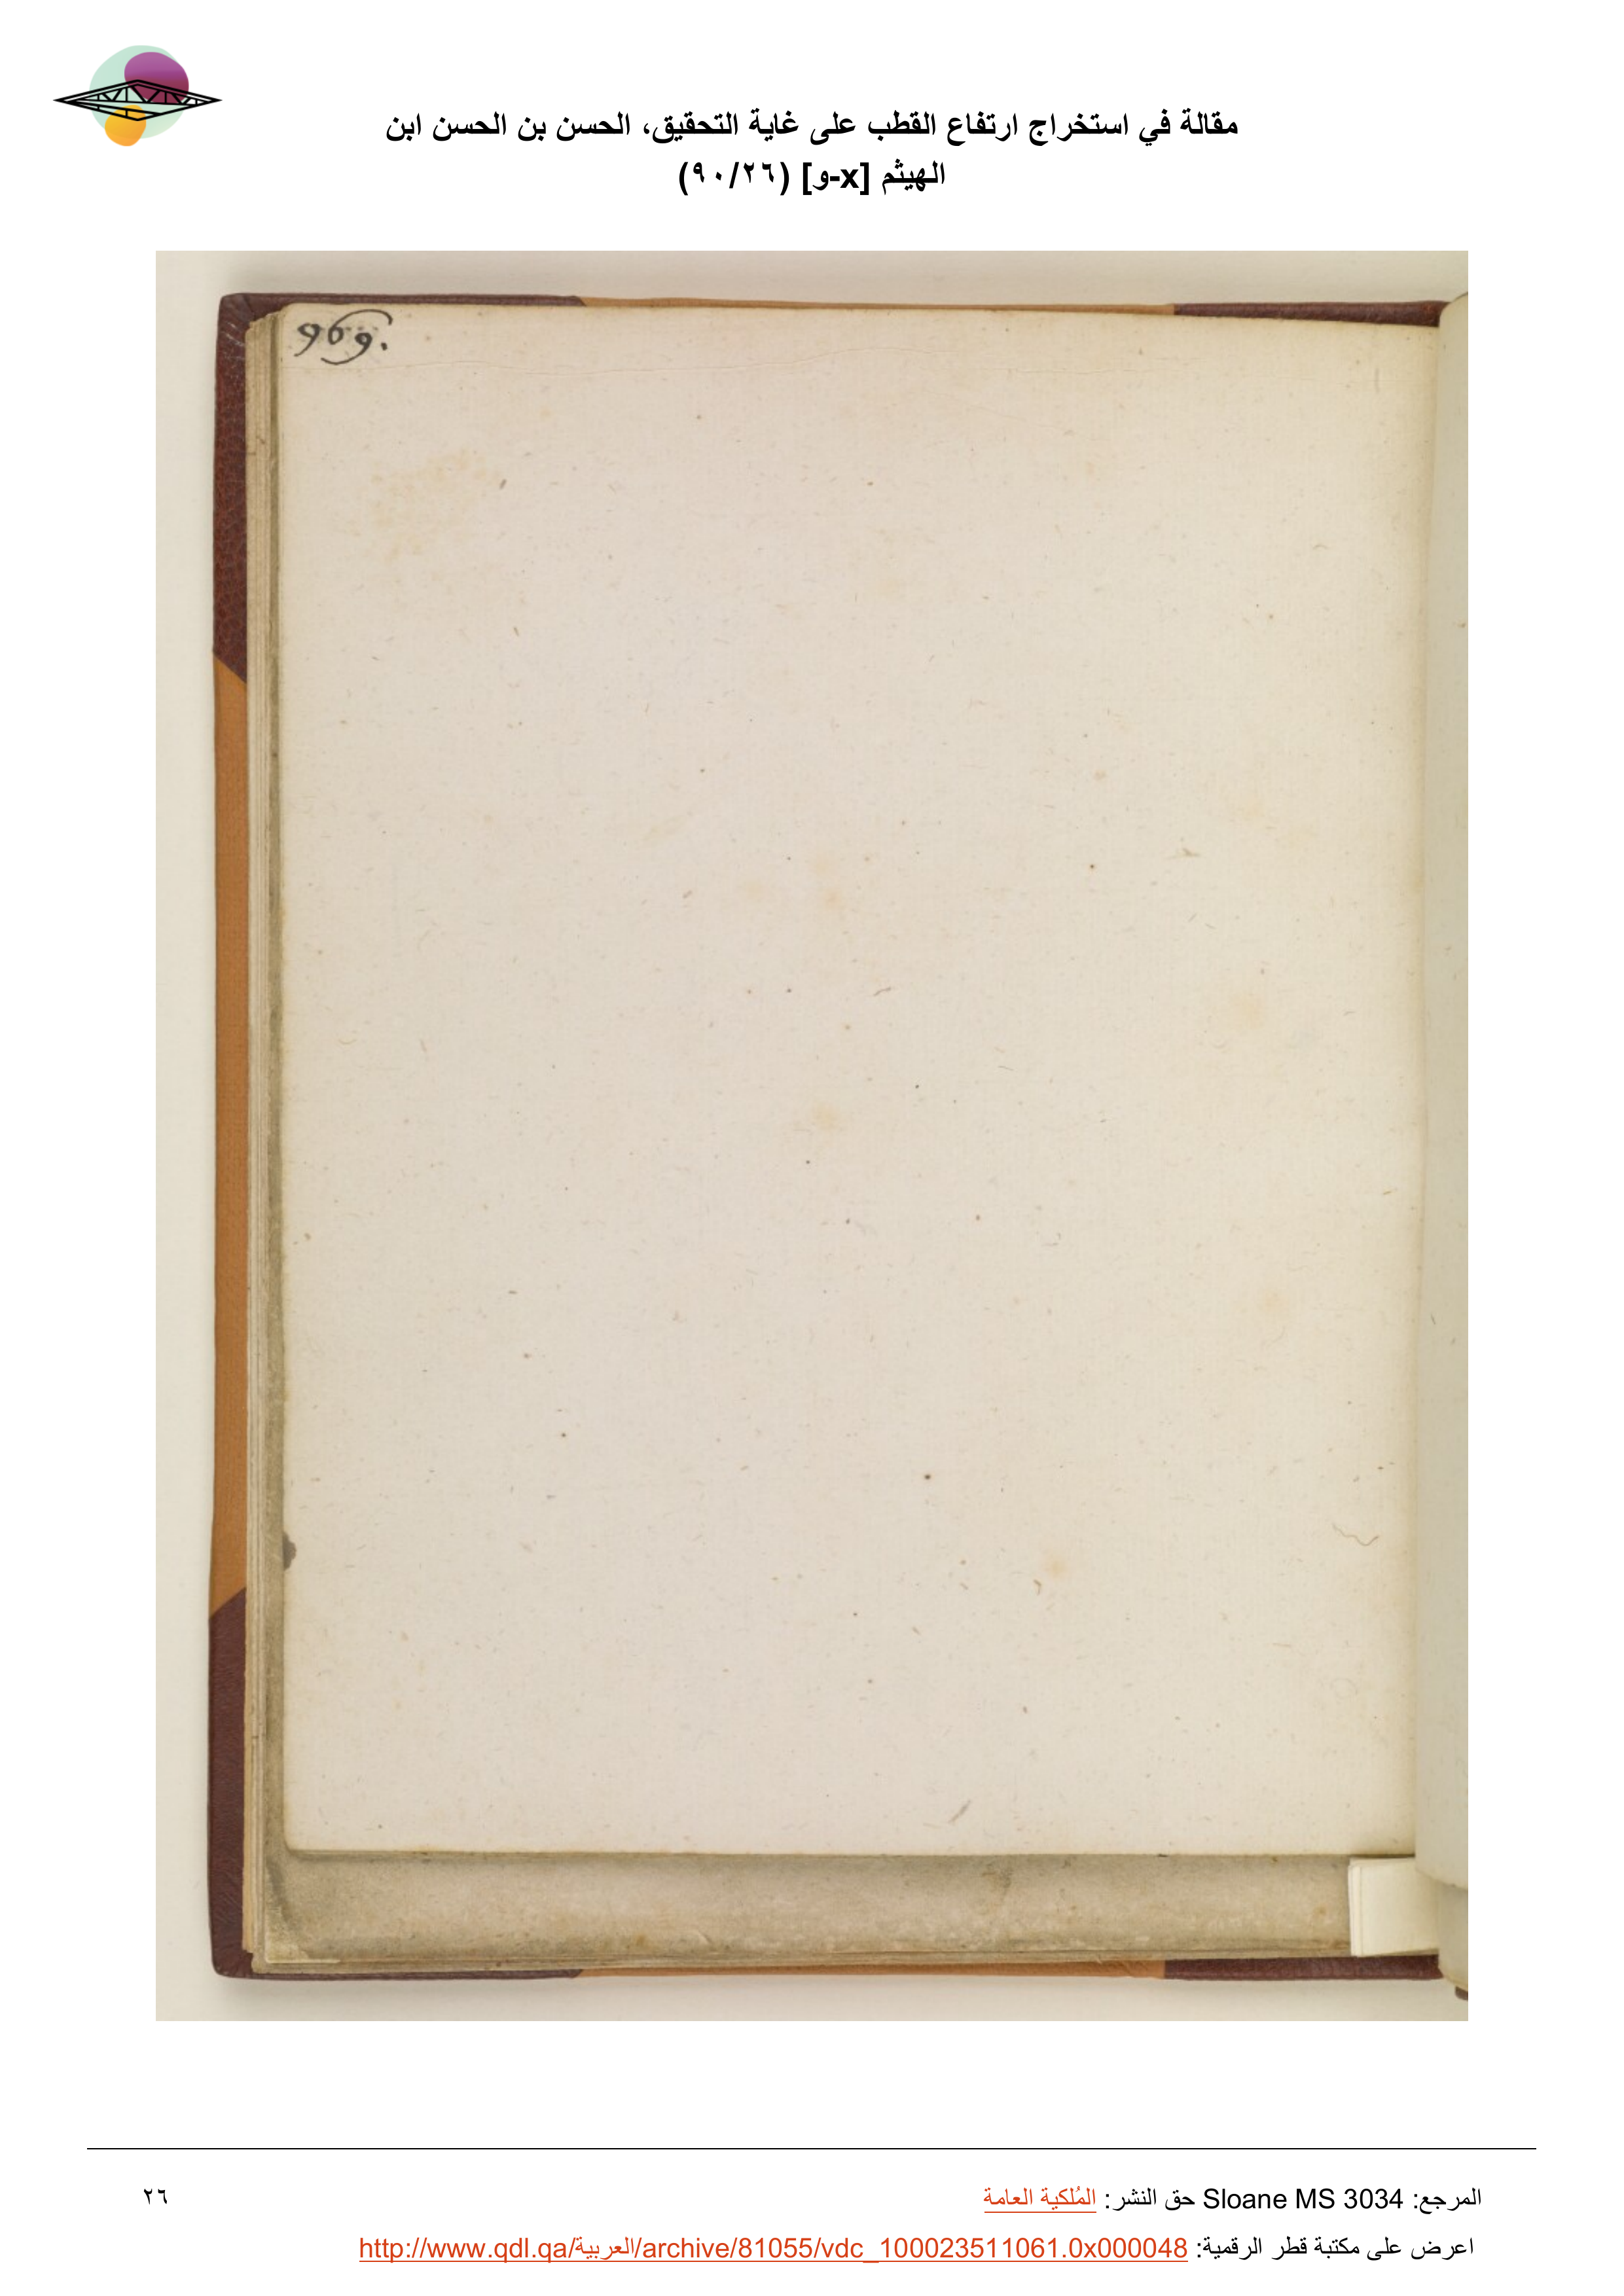 مقالة في استخراج ارتفاع القطب على غاية التحقيق، الحسن بن الحسن ابن
الهيثم [x-و] (٩٠/٢٦)
969.
المرجع: Sloane MS 3034 حق النشر: المُلكية العامة
٢٦
اعرض على مكتبة قطر الرقمية: http://www.qdl.qa/العربية/archive/81055/vdc_100023511061.0x000048